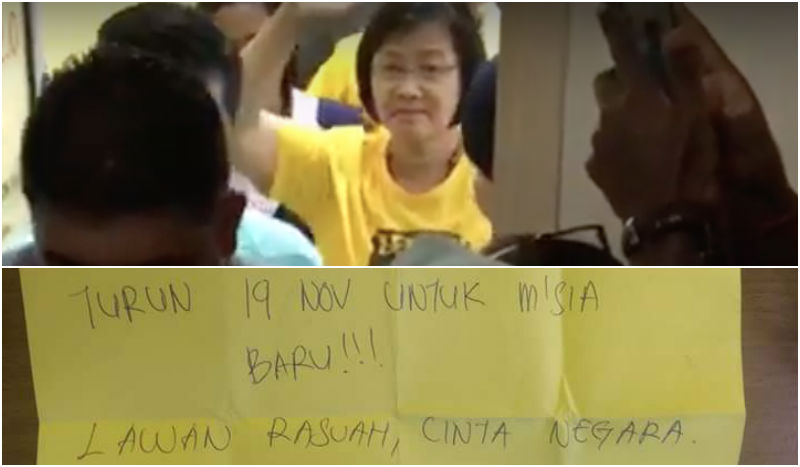 TURUN 19 NOV UNTUK M'SIA
BARU!!!
LAWAN RASUAH, CINTA NEGARA.